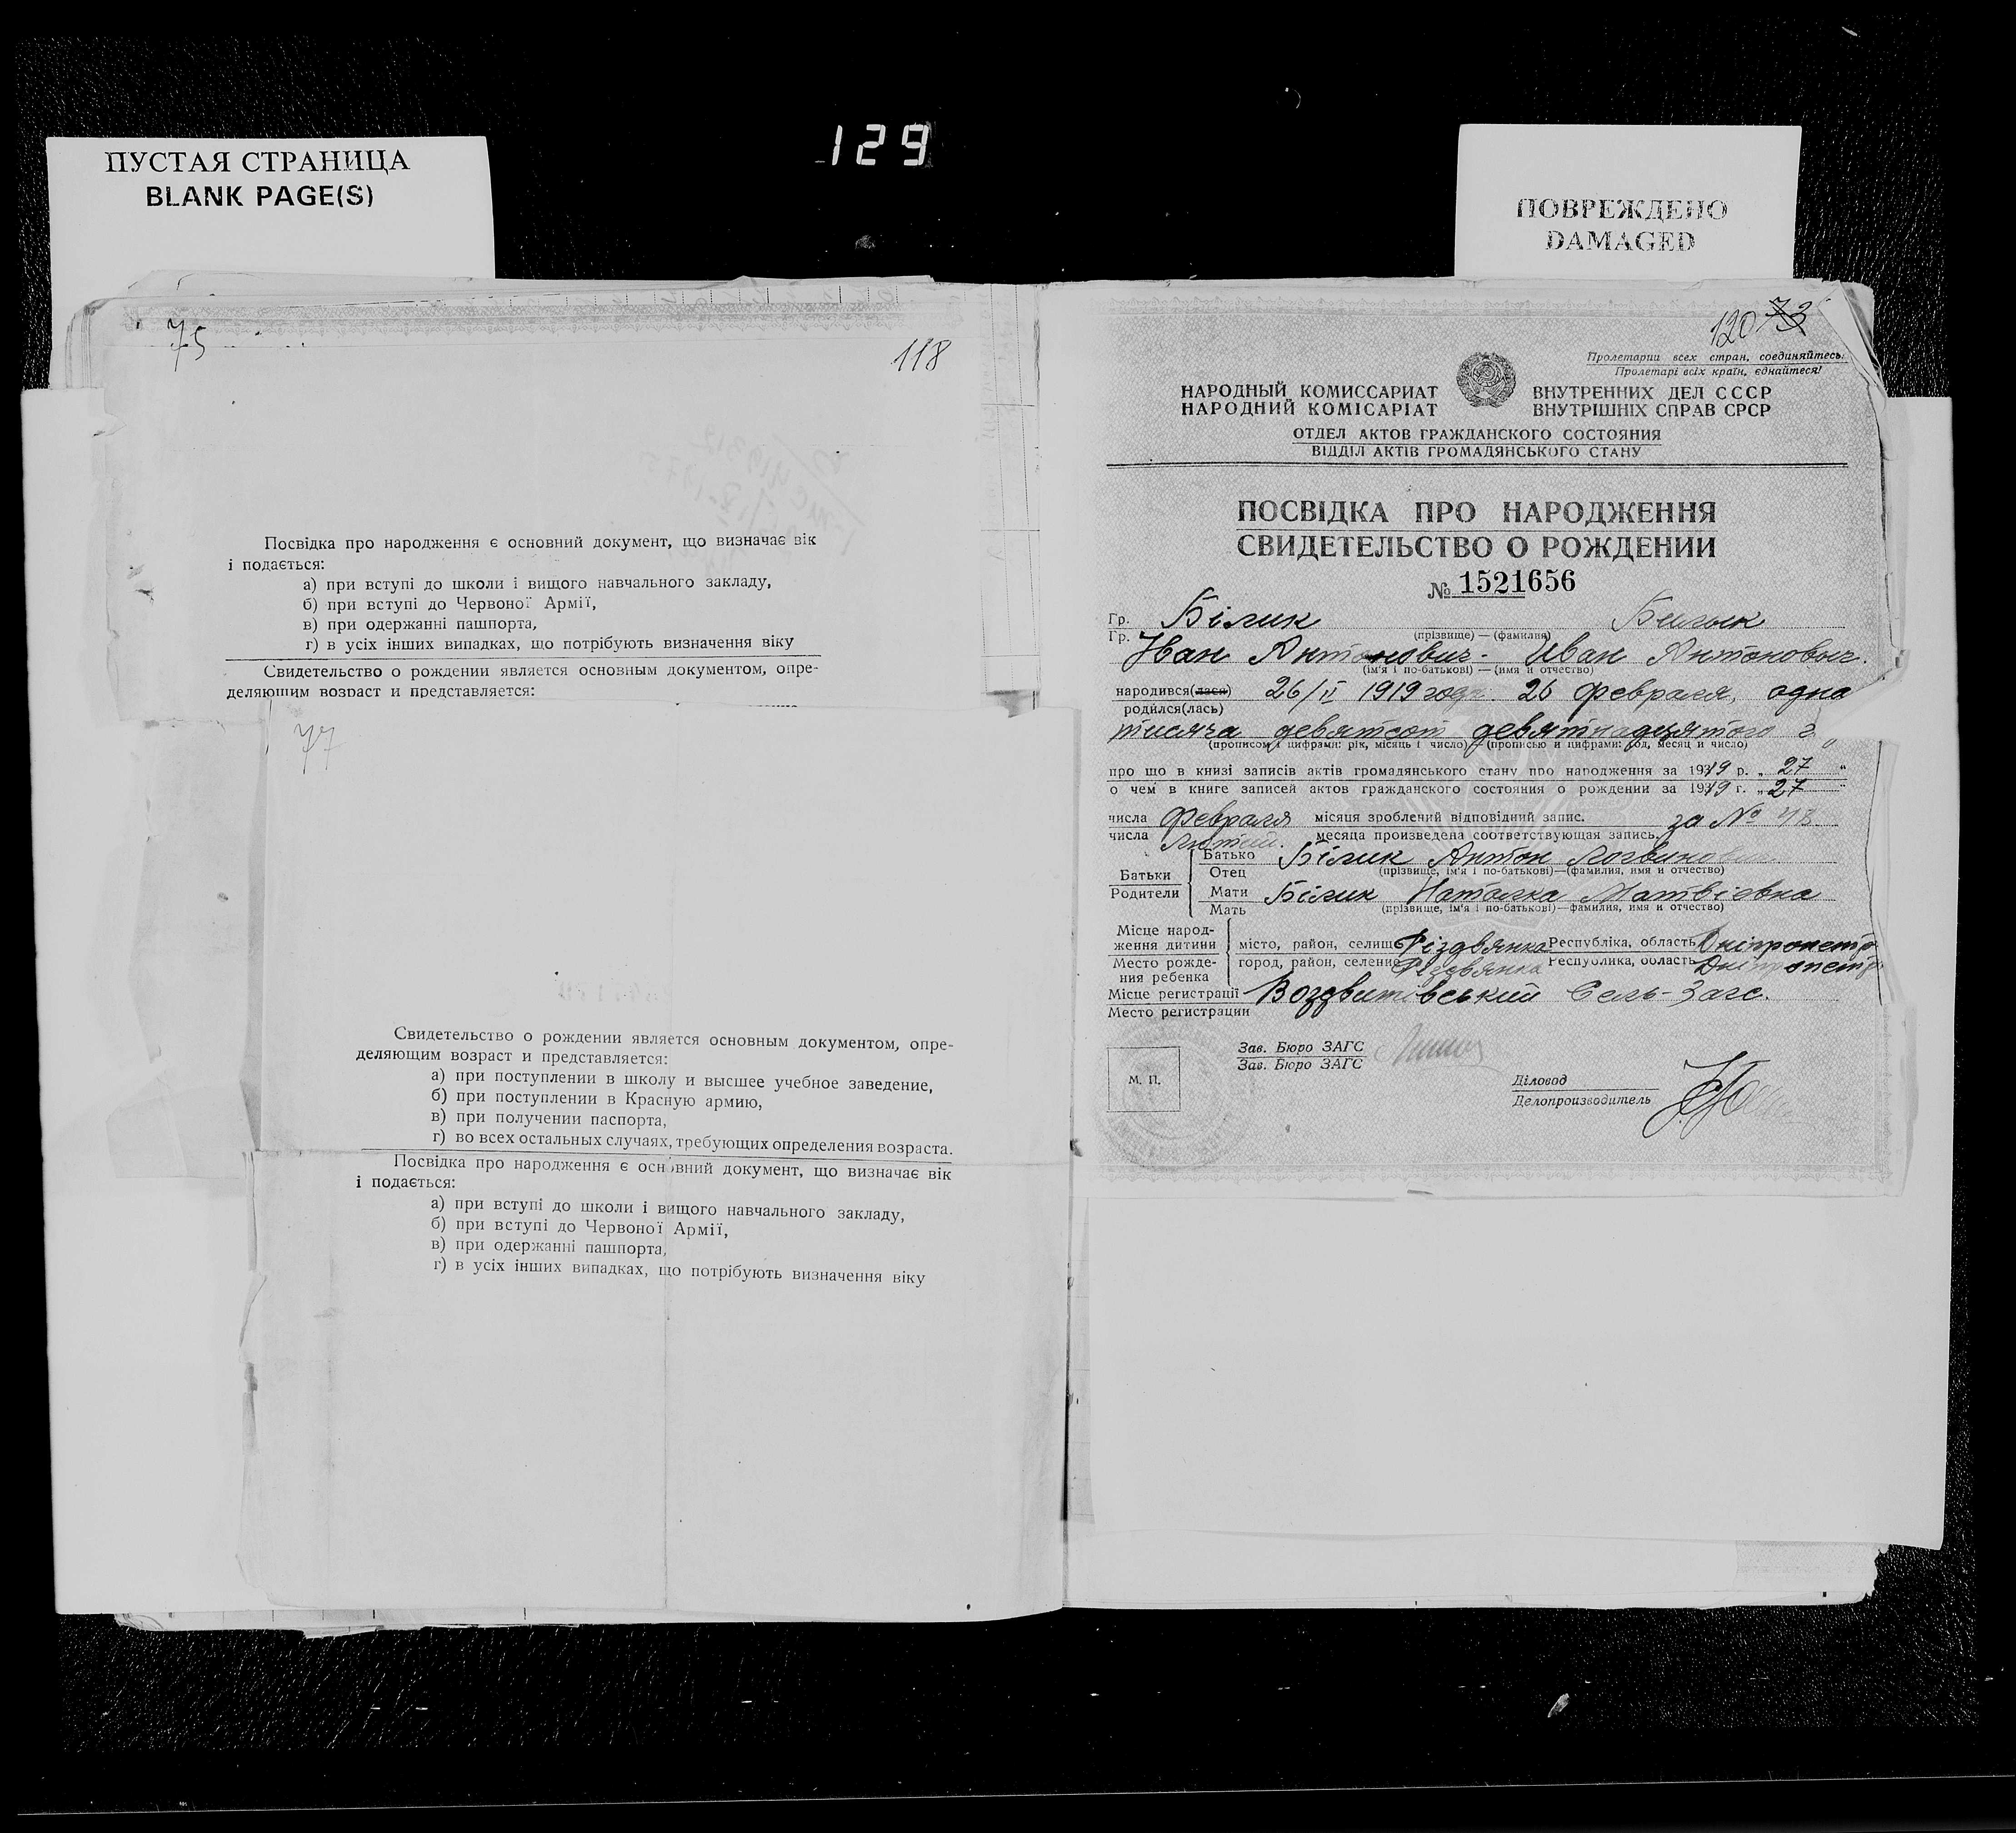 129
ПУСТАЯ СТРАНИЦА
BLANK PAGE(S)
ПОВРЕЖДЕНО
DAMAGED
75
118
Посвідка про народження є основний документ, що визначає вік
і подається:
а) при вступі до школи і вищого навчального закладу,
б) при вступі до Червоної Армії,
в) при одержанні пашпорта,
г) в усіх інших випадках, що потрібують визначення віку
Свидетельство о рождении является основным документом, опре-
деляющим возраст и представляется:
77
Свидетельство о рождении является основным документом, опре-
деляющим возраст и представляется:
а) при поступлении в школу и высшее учебное заведение,
б) при поступлении в Красную армию,
в) при получении паспорта,
г) во всех остальных случаях, требующих определения возраста.
Посвідка про народження є основний документ, що визначає вік
і подається:
а) при вступі до школи і вищого навчального закладу,
б) при вступі до Червоної Армії,
в) при одержанні пашпорта,
г) в усіх інших випадках, що потрібують визначення віку
120 73
Пролетарии всех стран, соединяйтесь!
Пролетарі всіх країн, єднайтеся!
НАРОДНЫЙ КОМИССАРИАТ ВНУТРЕННИХ ДЕЛ СССР
НАРОДНИЙ КОМІСАРІАТ ВНУТРІШНІХ СПРАВ СРСР
ОТДЕЛ АКТОВ ГРАЖДАНСКОГО СОСТОЯНИЯ
ВІДДІЛ АКТІВ ГРОМАДЯНСЬКОГО СТАНУ
ПОСВІДКА ПРО НАРОДЖЕННЯ
СВИДЕТЕЛЬСТВО О РОЖДЕНИИ
№ 1521656
Гр. Білик Билык
Гр. (прізвище) — (фамилия)
Іван Антонович - Иван Антонович.
(ім'я і по-батькові) — (имя и отчество)
народився(лася) 26/ІІ 1919 году. 26 февраля, одна
родился(лась)
тисяча девятсот девятнадцятого г.
(прописом і цифрами: рік, місяць і число) — (прописью и цифрами: год, месяц и число)
про що в книзі записів актів громадянського стану про народження за 1919 р. „27“
о чем в книге записей актов гражданского состояния о рождении за 1919 г. „27“
числа Февраля місяця зроблений відповідний запис. за № 48
числа Лютий. месяца произведена соответствующая запись.
Батьки Батько Білик Антон Логвинович
Родители Отец (прізвище, ім'я і по-батькові)—(фамилия, имя и отчество)
Мати Білик Наталка Матвієвна
Мать (прізвище, ім'я і по-батькові)—фамилия, имя и отчество)
Місце народ-
ження дитини місто, район, селище Різдвянка Республіка, область Дніпропетр
Место рожде- город, район, селение Різдвянка Республика, область Дніпропетр
ния ребенка
Місце регистрації Воздвитівський Сель-Загс.
Место регистрации
Зав. Бюро ЗАГС
Зав. Бюро ЗАГС
М. П.
Діловод
Делопроизводитель